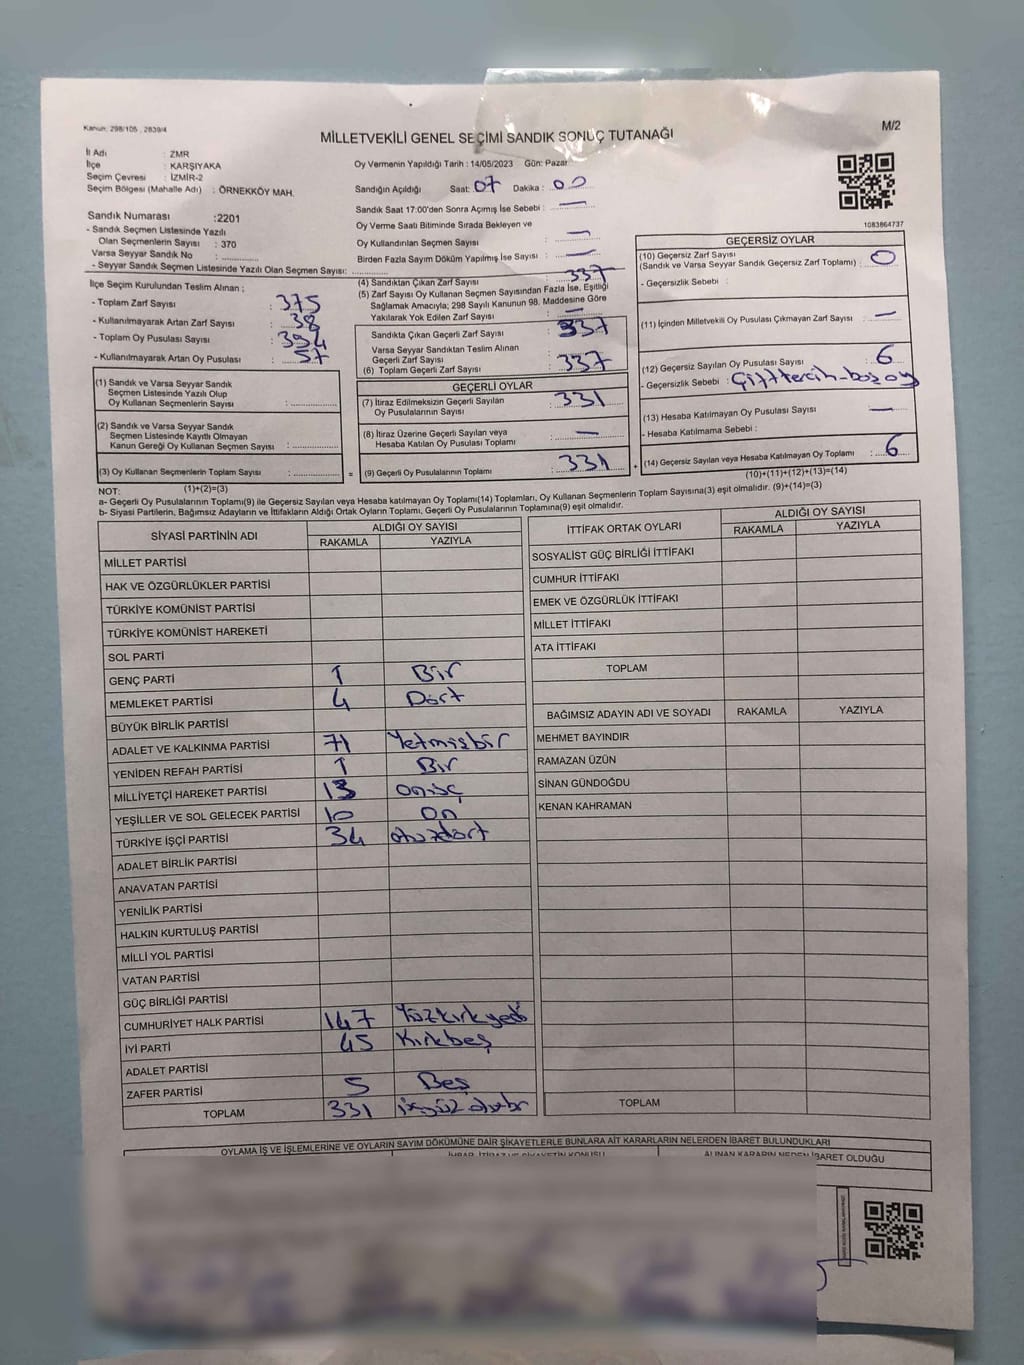 Kanun: 298/105 , 2839/4
M/2
MİLLETVEKİLİ GENEL SEÇİMİ SANDIK SONUÇ TUTANAĞI
İl Adı : ZMR
İlçe : KARŞIYAKA
Seçim Çevresi : İZMİR-2
Seçim Bölgesi (Mahalle Adı) : ÖRNEKKÖY MAH.
Oy Vermenin Yapıldığı Tarih : 14/05/2023 Gün: Pazar
Sandığın Açıldığı Saat: 07 Dakika : 00
Sandık Saat 17:00'den Sonra Açımış İse Sebebi : —
Oy Verme Saati Bitiminde Sırada Bekleyen ve
Oy Kullandırılan Seçmen Sayısı : —
Birden Fazla Sayım Döküm Yapılmış İse Sayısı : —
1083864737
Sandık Numarası :2201
- Sandık Seçmen Listesinde Yazılı
Olan Seçmenlerin Sayısı : 370
Varsa Seyyar Sandık No :
- Seyyar Sandık Seçmen Listesinde Yazılı Olan Seçmen Sayısı:
İlçe Seçim Kurulundan Teslim Alınan ;
- Toplam Zarf Sayısı : 375
- Kullanılmayarak Artan Zarf Sayısı : 38
- Toplam Oy Pusulası Sayısı : 394
- Kullanılmayarak Artan Oy Pusulası : 57
(4) Sandıktan Çıkan Zarf Sayısı : 337
(5) Zarf Sayısı Oy Kullanan Seçmen Sayısından Fazla İse, Eşitliği
Sağlamak Amacıyla; 298 Sayılı Kanunun 98. Maddesine Göre
Yakılarak Yok Edilen Zarf Sayısı : —
Sandıkta Çıkan Geçerli Zarf Sayısı : 337
Varsa Seyyar Sandıktan Teslim Alınan
Geçerli Zarf Sayısı
(6) Toplam Geçerli Zarf Sayısı : 337
GEÇERLİ OYLAR
(7) İtiraz Edilmeksizin Geçerli Sayılan
Oy Pusulalarının Sayısı : 331
(8) İtiraz Üzerine Geçerli Sayılan veya
Hesaba Katılan Oy Pusulası Toplamı : —
(9) Geçerli Oy Pusulalarının Toplamı : 331
GEÇERSİZ OYLAR
(10) Geçersiz Zarf Sayısı
(Sandık ve Varsa Seyyar Sandık Geçersiz Zarf Toplamı) : 0
- Geçersizlik Sebebi :
(11) İçinden Milletvekili Oy Pusulası Çıkmayan Zarf Sayısı : —
(12) Geçersiz Sayılan Oy Pusulası Sayısı : 6
- Geçersizlik Sebebi : Çift tercih - boş oy
(13) Hesaba Katılmayan Oy Pusulası Sayısı : —
- Hesaba Katılmama Sebebi :
(14) Geçersiz Sayılan veya Hesaba Katılmayan Oy Toplamı : 6
(10)+(11)+(12)+(13)=(14)
(1) Sandık ve Varsa Seyyar Sandık
Seçmen Listesinde Yazılı Olup
Oy Kullanan Seçmenlerin Sayısı :
(2) Sandık ve Varsa Seyyar Sandık
Seçmen Listesinde Kayıtlı Olmayan
Kanun Gereği Oy Kullanan Seçmen Sayısı :
(3) Oy Kullanan Seçmenlerin Toplam Sayısı :
(1)+(2)=(3)
NOT:
a- Geçerli Oy Pusulalarının Toplamı(9) ile Geçersiz Sayılan veya Hesaba katılmayan Oy Toplamı(14) Toplamları, Oy Kullanan Seçmenlerin Toplam Sayısına(3) eşit olmalıdır. (9)+(14)=(3)
b- Siyasi Partilerin, Bağımsız Adayların ve İttifakların Aldığı Ortak Oyların Toplamı, Geçerli Oy Pusulalarının Toplamına(9) eşit olmalıdır.
SİYASİ PARTİNİN ADI ALDIĞI OY SAYISI
RAKAMLA YAZIYLA
MİLLET PARTİSİ
HAK VE ÖZGÜRLÜKLER PARTİSİ
TÜRKİYE KOMÜNİST PARTİSİ
TÜRKİYE KOMÜNİST HAREKETİ
SOL PARTİ
GENÇ PARTİ 1 Bir
MEMLEKET PARTİSİ 4 Dört
BÜYÜK BİRLİK PARTİSİ
ADALET VE KALKINMA PARTİSİ 71 Yetmişbir
YENİDEN REFAH PARTİSİ 1 Bir
MİLLİYETÇİ HAREKET PARTİSİ 13 onüç
YEŞİLLER VE SOL GELECEK PARTİSİ 10 On
TÜRKİYE İŞÇİ PARTİSİ 34 otuzdört
ADALET BİRLİK PARTİSİ
ANAVATAN PARTİSİ
YENİLİK PARTİSİ
HALKIN KURTULUŞ PARTİSİ
MİLLİ YOL PARTİSİ
VATAN PARTİSİ
GÜÇ BİRLİĞİ PARTİSİ
CUMHURİYET HALK PARTİSİ 147 Yüzkırkyedi
İYİ PARTİ 45 Kırkbeş
ADALET PARTİSİ
ZAFER PARTİSİ 5 Beş
TOPLAM 331
İTTİFAK ORTAK OYLARI ALDIĞI OY SAYISI
RAKAMLA YAZIYLA
SOSYALİST GÜÇ BİRLİĞİ İTTİFAKI
CUMHUR İTTİFAKI
EMEK VE ÖZGÜRLÜK İTTİFAKI
MİLLET İTTİFAKI
ATA İTTİFAKI
TOPLAM
BAĞIMSIZ ADAYIN ADI VE SOYADI RAKAMLA YAZIYLA
MEHMET BAYINDIR
RAMAZAN ÜZÜN
SİNAN GÜNDOĞDU
KENAN KAHRAMAN
TOPLAM
OYLAMA İŞ VE İŞLEMLERİNE VE OYLARIN SAYIM DÖKÜMÜNE DAİR ŞİKAYETLERLE BUNLARA AİT KARARLARIN NELERDEN İBARET BULUNDUKLARI
İHBAR, İTİRAZ VE ŞİKAYETİN KONUSU ALINAN KARARIN NEDEN İBARET OLDUĞU